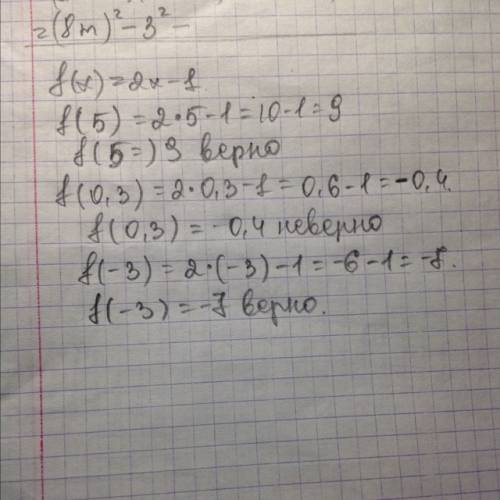 =(8m)²-3²-
f(x)=2x-1
f(5)=2·5-1=10-1=9
f(5=)9 верно
f(0,3)=2·0,3-1=0,6-1=-0,4.
f(0,3)=-0,4 неверно
f(-3)=2·(-3)-1=-6-1=-7.
f(-3)=-7 верно.